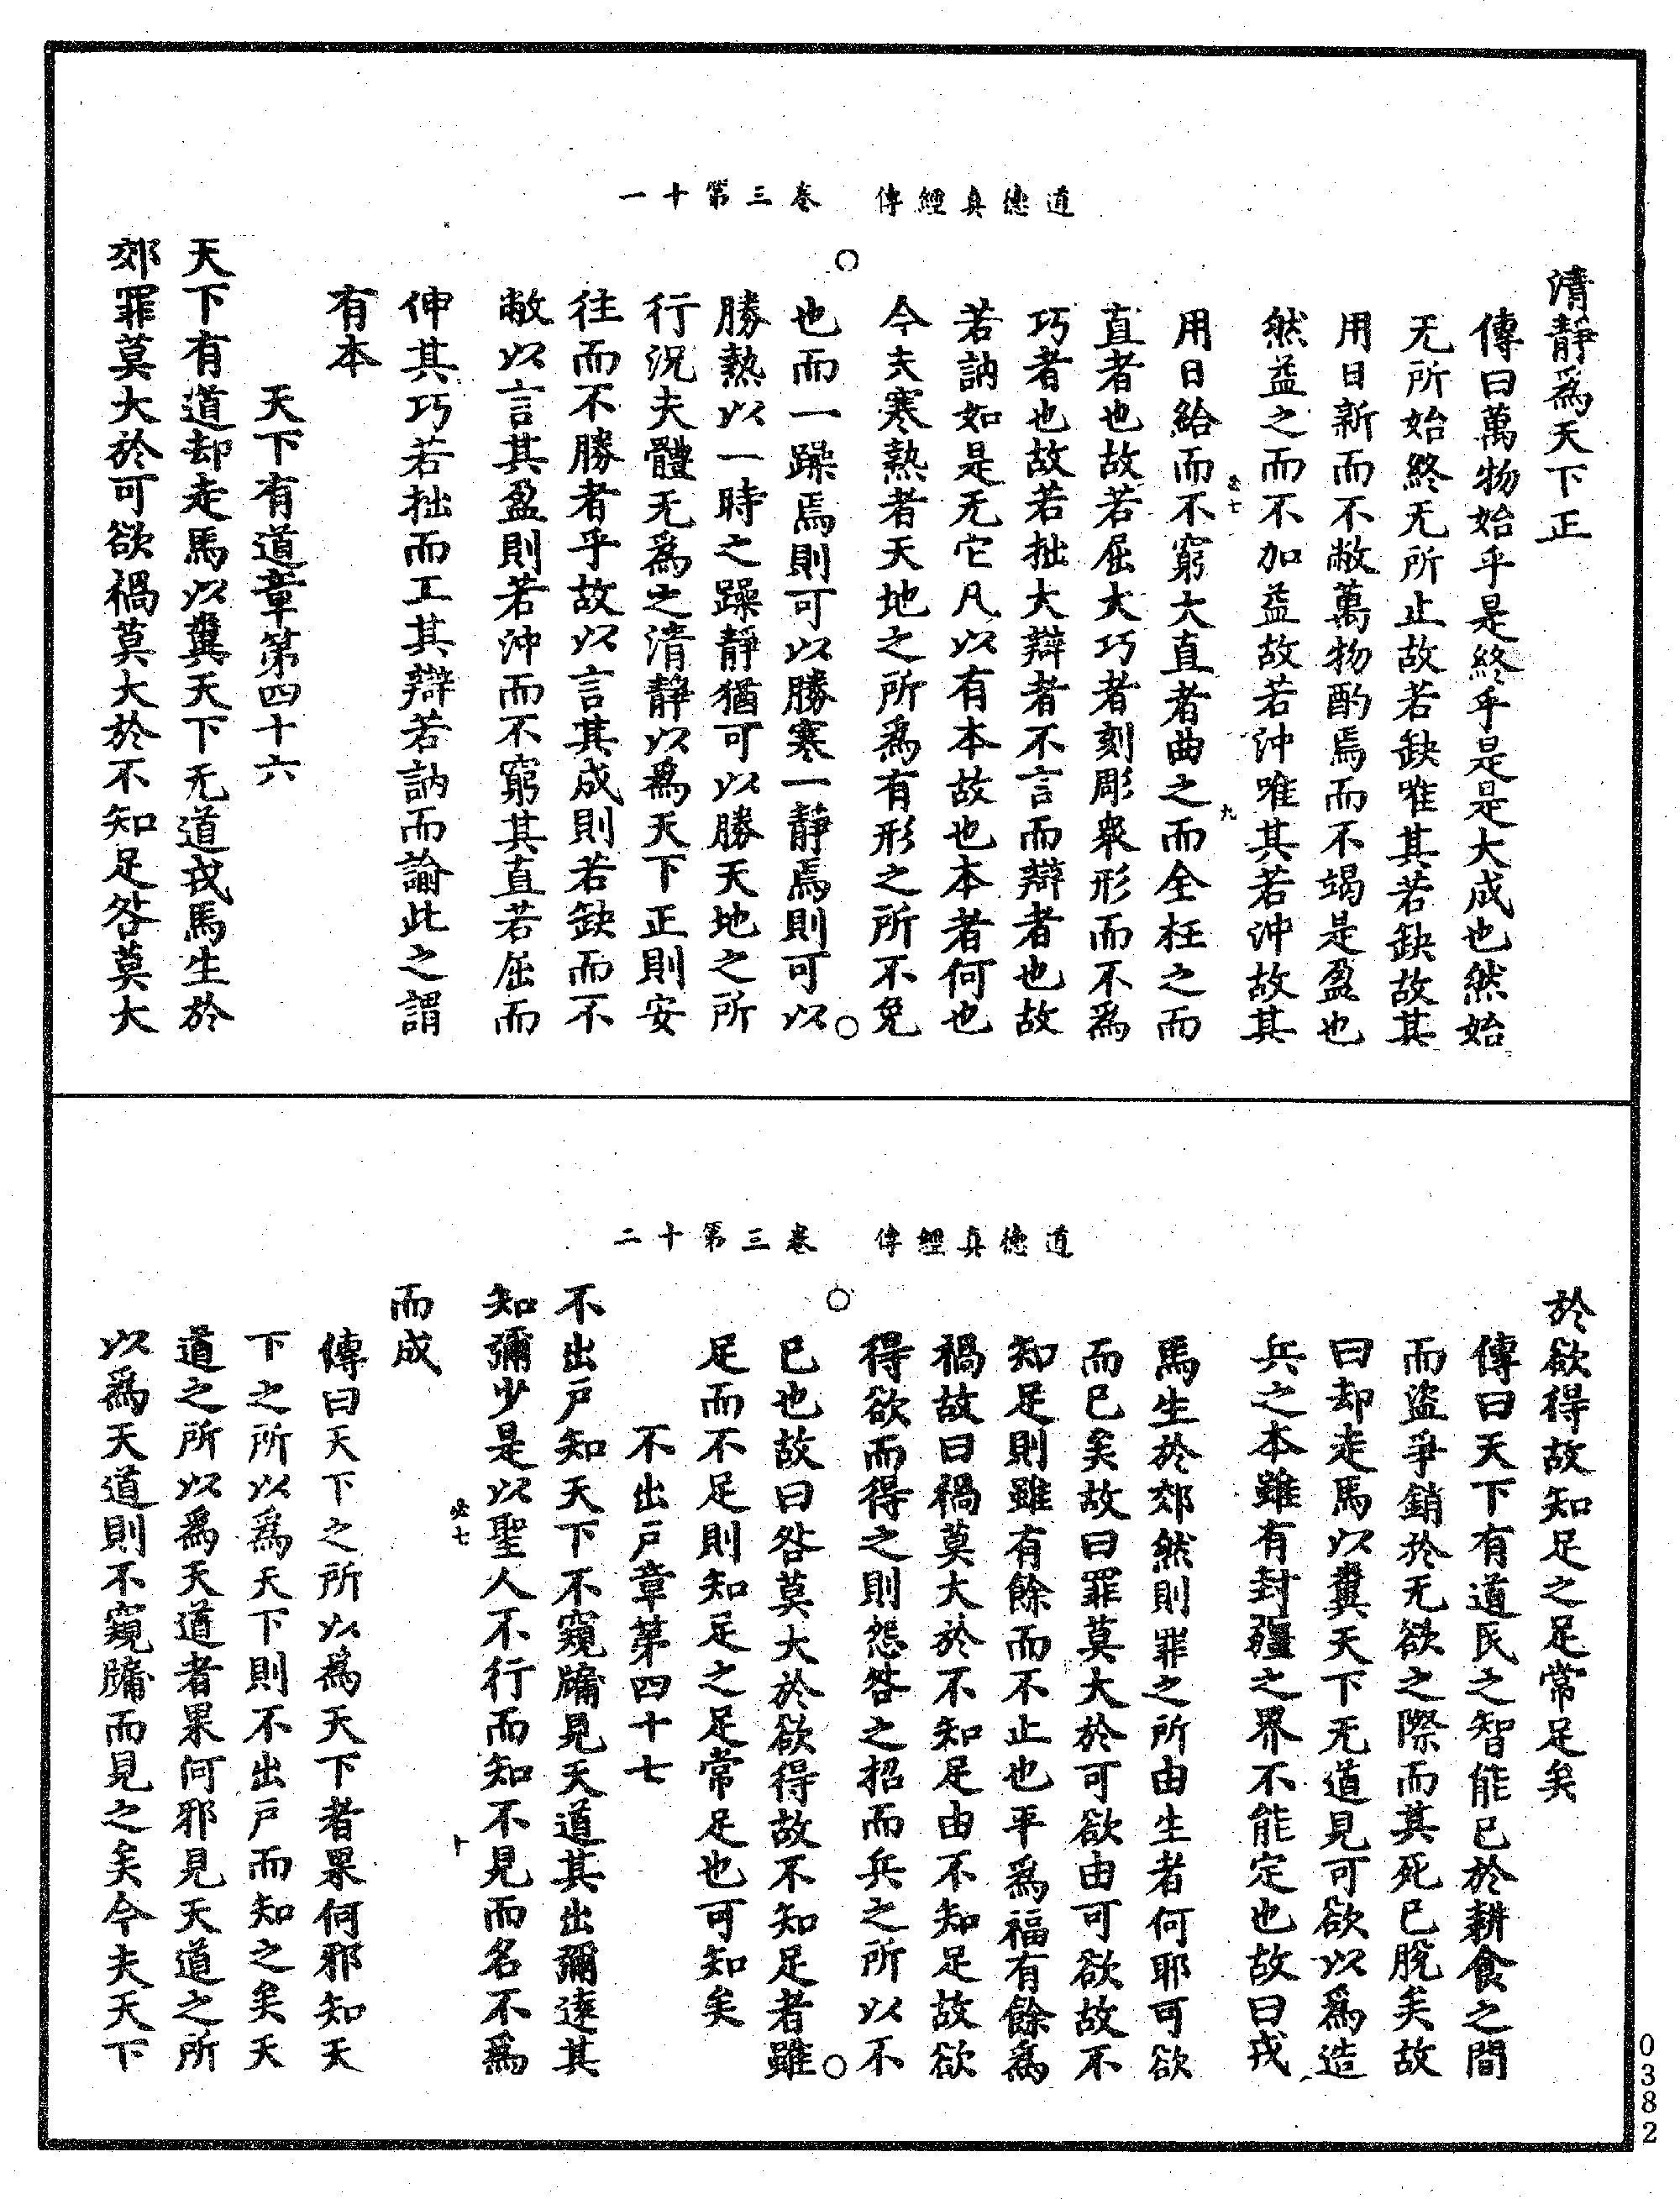 道德真經傳　卷三第十一
清靜爲天下正
傳曰萬物始乎是終乎是是大成也然始
无所始終无所止故若缺唯其若缺故其
用日新而不敝萬物酌焉而不竭是盈也
然益之而不加益故若沖唯其若沖故其
必七　九
用日給而不窮大直者曲之而全枉之而
直者也故若屈大巧者刻彫衆形而不爲
巧者也故若拙大辯者不言而辯者也故
若訥如是无它凡以有本故也本者何也
今夫寒熱者天地之所爲有形之所不免
也而一躁焉則可以勝寒一靜焉則可以
勝熱以一時之躁靜猶可以勝天地之所
行況夫體无爲之清靜以爲天下正則安
往而不勝者乎故以言其成則若缺而不
敝以言其盈則若沖而不窮其直若屈而
伸其巧若拙而工其辯若訥而諭此之謂
有本
天下有道章第四十六
天下有道却走馬以糞天下无道戎馬生於
郊罪莫大於可欲禍莫大於不知足咎莫大
道德真經傳　卷三第十二
於欲得故知足之足常足矣
傳曰天下有道民之智能已於耕食之間
而盜爭銷於无欲之際而其死已脫矣故
曰却走馬以糞天下无道見可欲以爲造
兵之本雖有封疆之界不能定也故曰戎
馬生於郊然則罪之所由生者何耶可欲
而已矣故曰罪莫大於可欲由可欲故不
知足則雖有餘而不止也平爲福有餘爲
禍故曰禍莫大於不知足由不知足故欲
得欲而得之則怨咎之招而兵之所以不
已也故曰咎莫大於欲得故不知足者雖
足而不足則知足之足常足也可知矣
不出戶章第四十七
不出戶知天下不窺牖見天道其出彌遠其
知彌少是以聖人不行而知不見而名不爲
必七　十
而成
傳曰天下之所以爲天下者果何邪知天
下之所以爲天下則不出戶而知之矣天
道之所以爲天道者果何邪見天道之所
以爲天道則不窺牖而見之矣今夫天下
0382